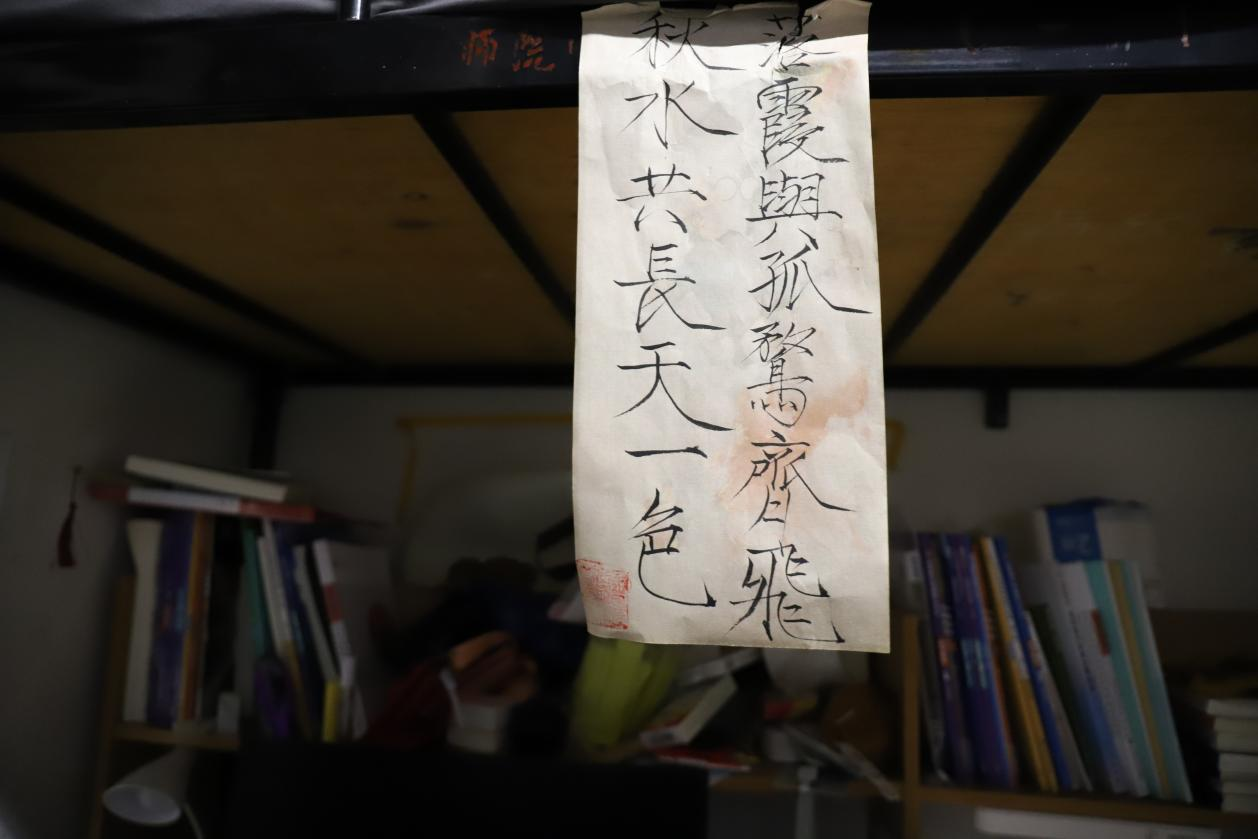 师院
落霞與孤鶩齊飛
秋水共長天一色